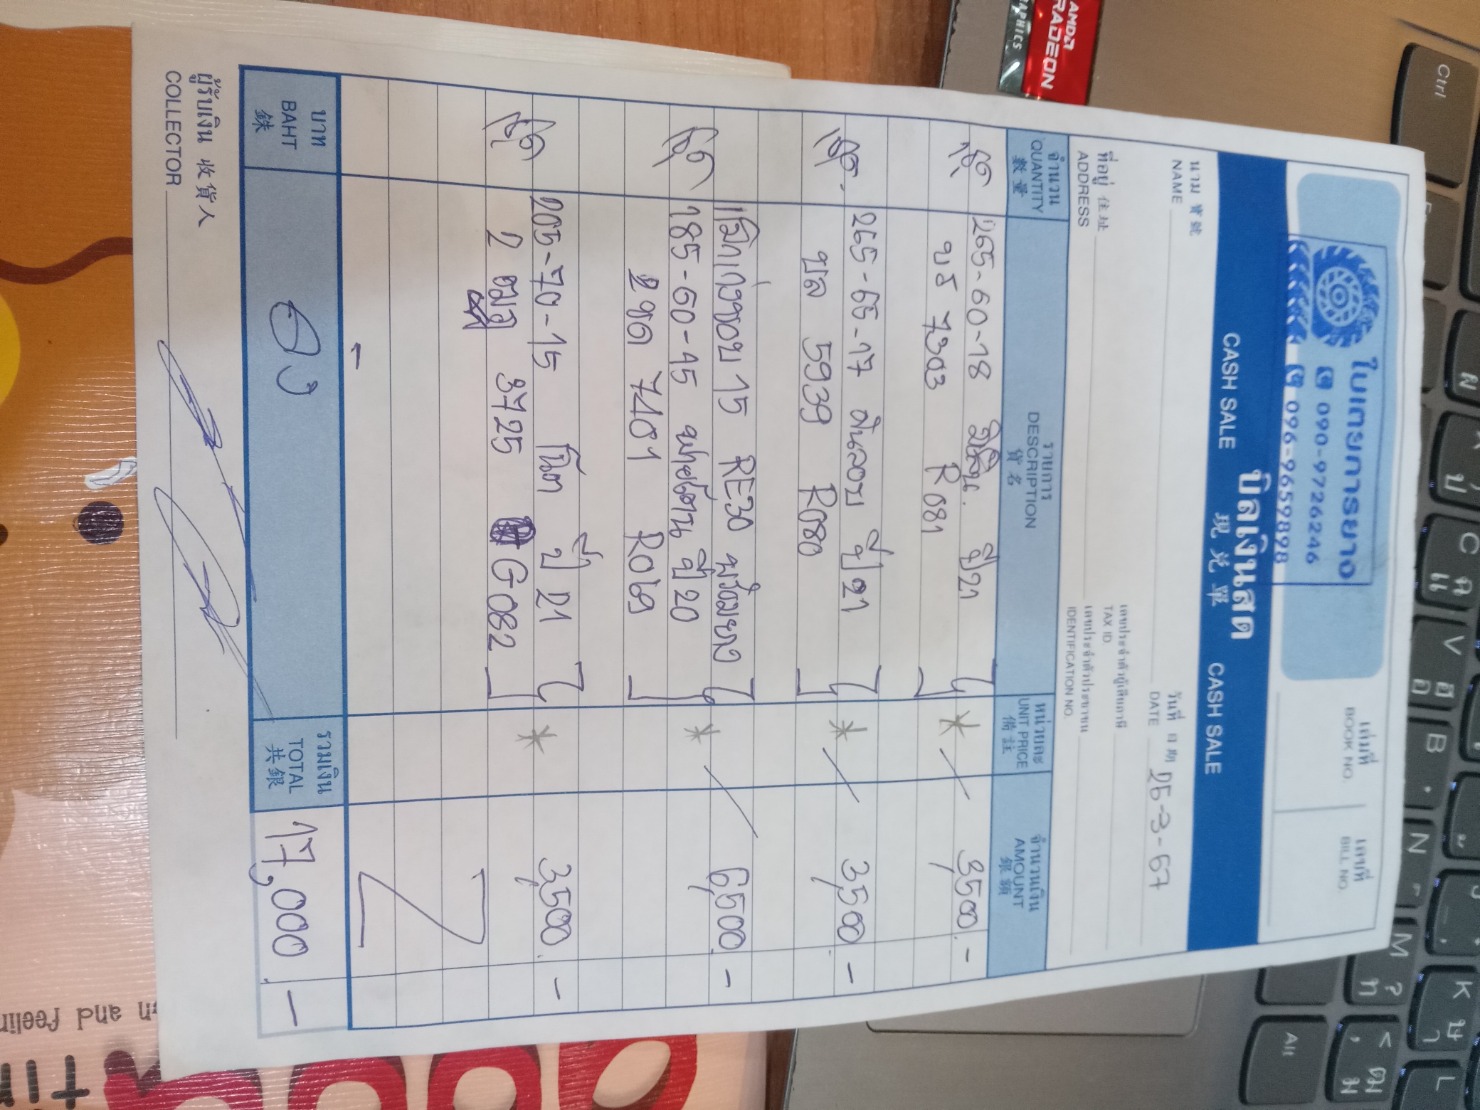 ใบเตยการยาง
090-9726246
096-9659898
เล่มที่
BOOK NO.
เลขที่
BILL NO.
CASH SALE บิลเงินสด CASH SALE
現兌單
วันที่ 日期
DATE 25-3-67
นาม 寶號
NAME
ที่อยู่ 住址
ADDRESS
เลขประจำตัวผู้เสียภาษี
TAX ID.
เลขประจำตัวประชาชน
IDENTIFICATION NO.
จำนวน รายการ หน่วยละ จำนวนเงิน
QUANTITY DESCRIPTION UNIT PRICE AMOUNT
數量 貨名 備註 銀額
ชุด 265-60-18 ปี 21 * 3,500.-
7303 R081
ชุด 265-65-17 ปี 21 * 3,500 -
5939 R080
15 RE30 พร้อมยาง 6,500 -
ชุด 185-60-15 ปี 20 *
7401 R069
205-70-15 ปี 21 * 3,500.-
ชุด 2 3725 G082
บาท รวมเงิน
BAHT TOTAL 17,000.-
銖 共銀
ผู้รับเงิน 收貨人
COLLECTOR
AMD
RADEON
GRAPHICS
Ctrl
C
V
B
N
M
K
L
Alt
n and feelin